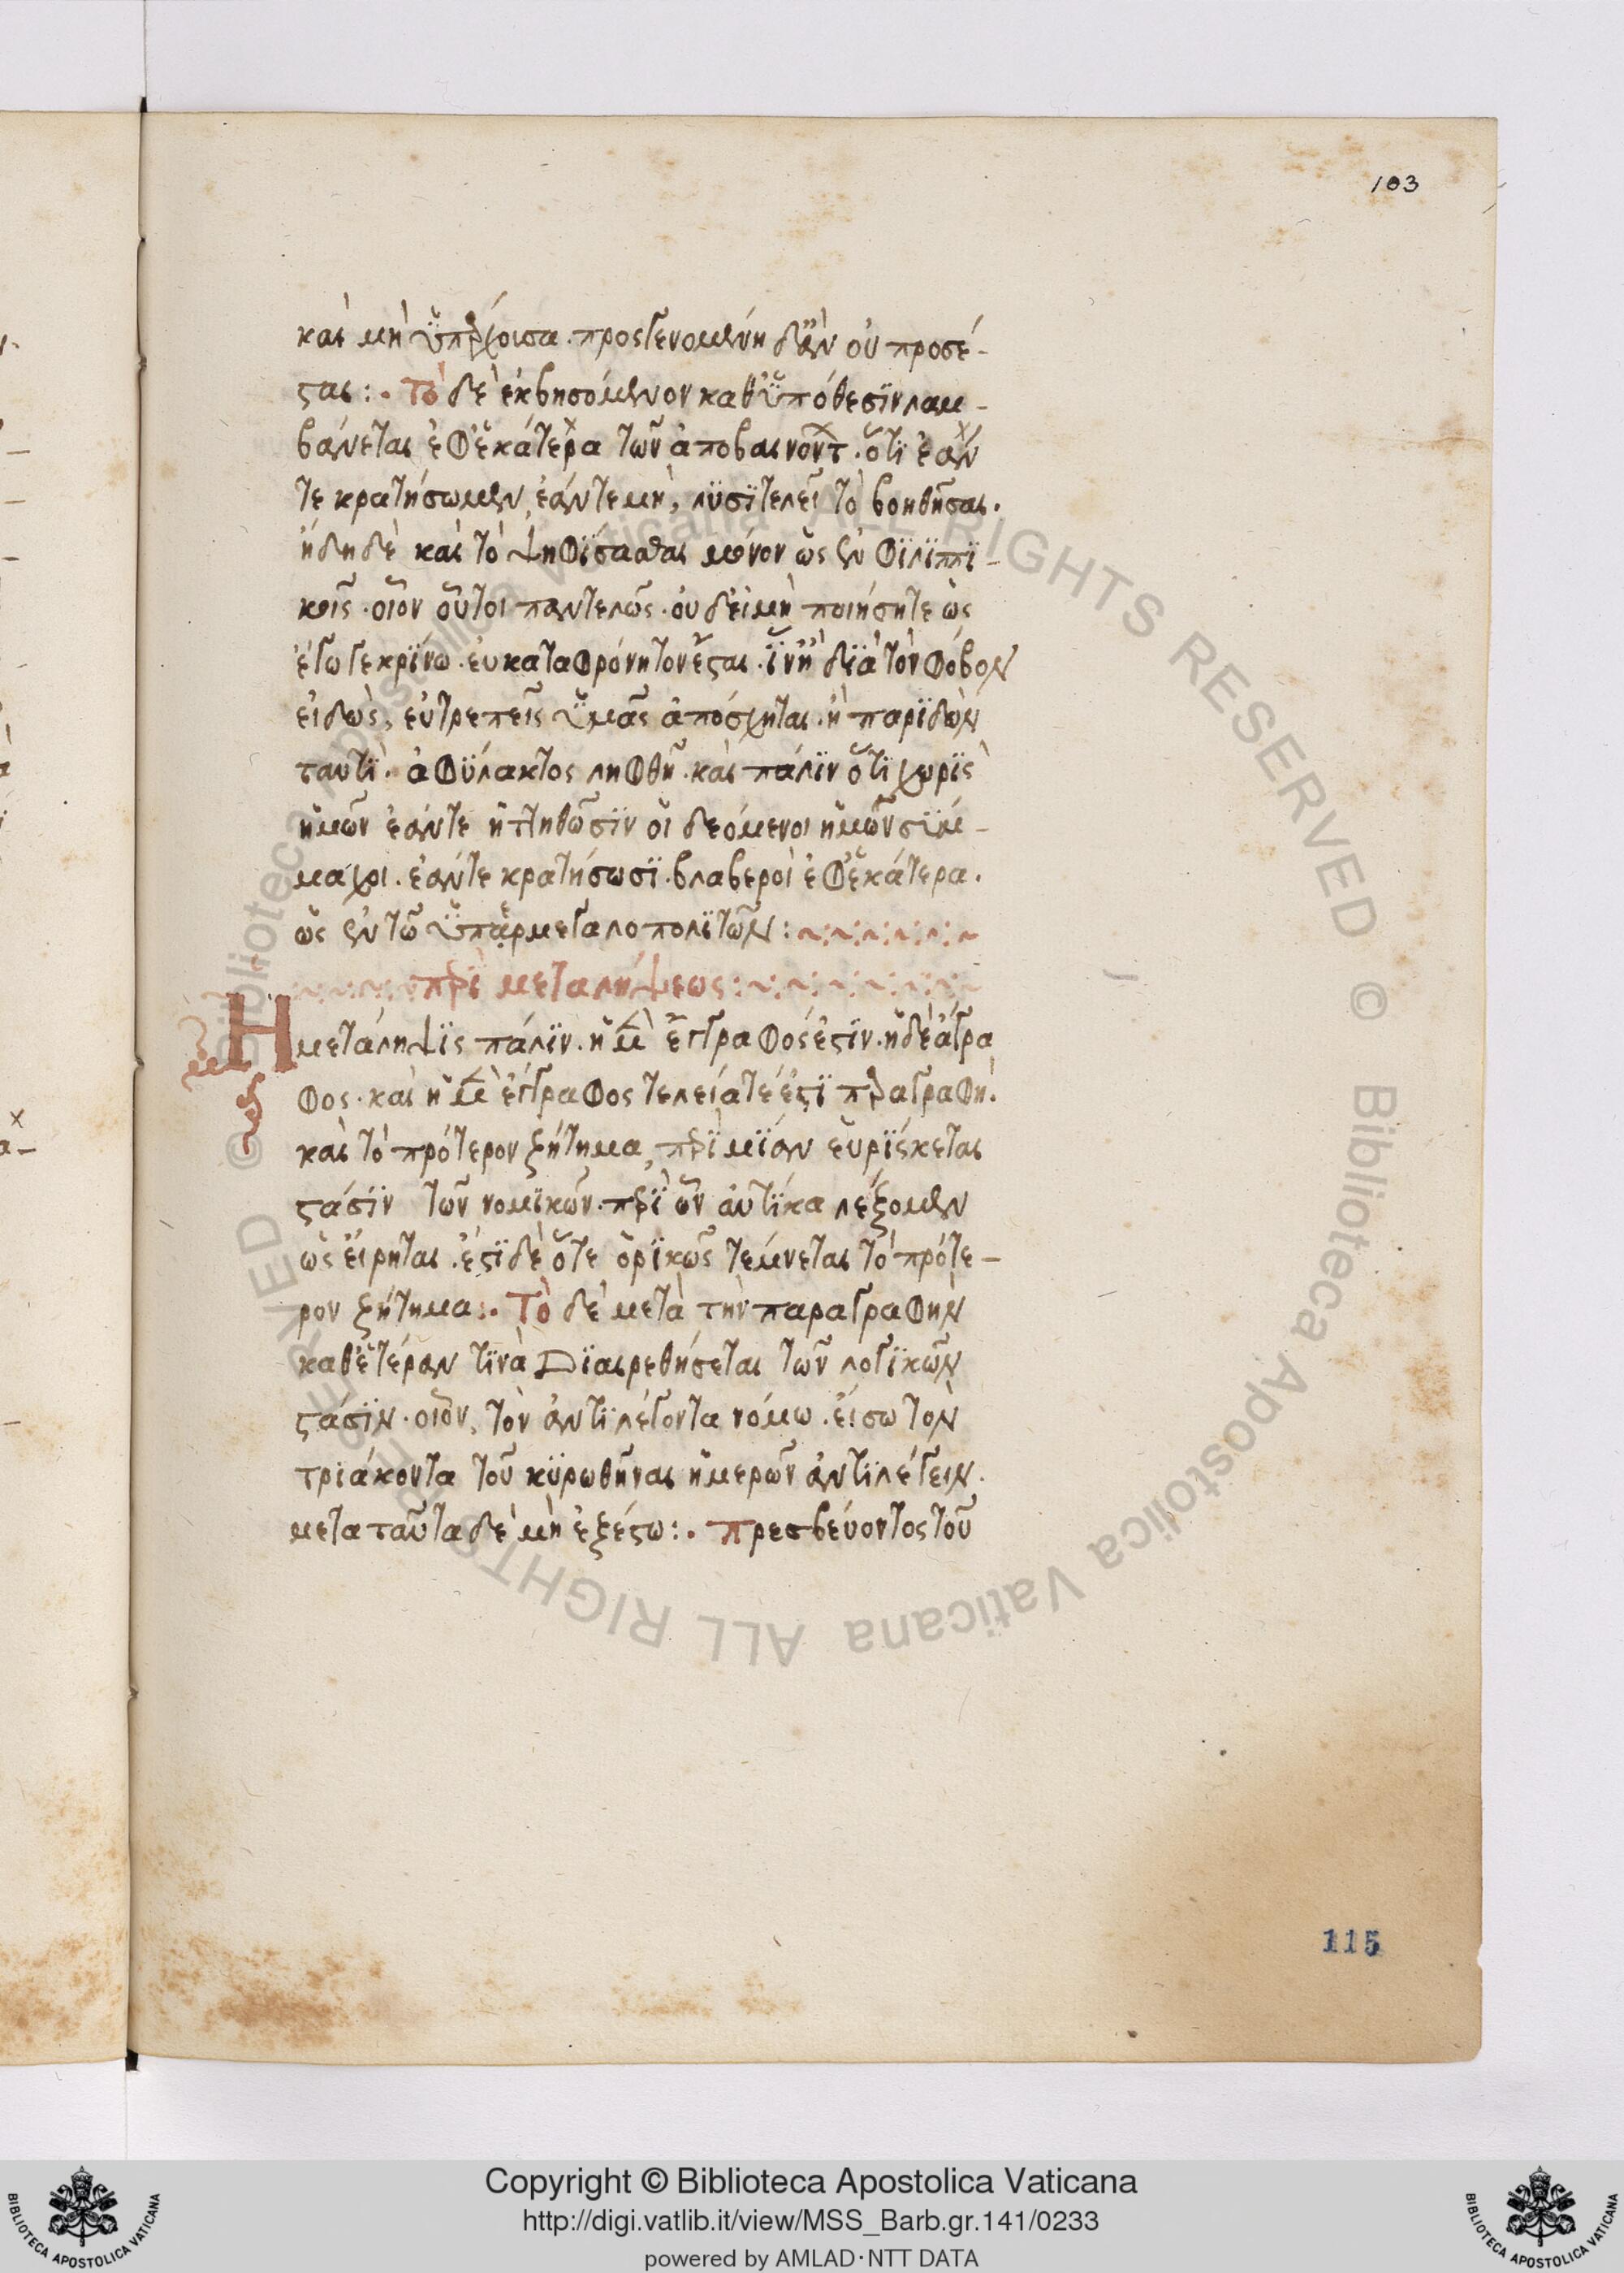 103
καὶ μὴ ὑπάρχουσα. προσγενομένη δ' ἂν οὐ προσέ-
σται :. Τὸ δὲ ἐκβησόμενον καθ' ὑπόθεσιν λαμ-
βάνεται ἐφ' ἑκάτερα τῶν ἀποβαινόντ. ὅτι ἐάν
τε κρατήσωμεν, ἐάν τε μὴ, λυσιτελεῖ τὸ βοηθῆσαι.
ἤδη δὲ καὶ τὸ ψηφίσασθαι μόνον ὡς ἐν φιλιππι-
κοῖς. οἷον οὔτοι παντελῶς. οὐδ' εἰ μὴ ποιήσητε ὡς
ἔγωγε κρίνω. εὐκαταφρόνητον ἔσται. ἵν' ἢ διὰ τὸν φόβον
εἰδὼς, εὐτρεπεῖς ὑμᾶς ἀπόσχηται. ἢ παριδὼν
ταυτὶ. ἀφύλακτος ληφθῇ. καὶ πάλιν ὅτι χωρὶς
ἡμῶν ἐάντε ἡττηθῶσιν οἱ δεόμενοι ἡμῶν σύμ-
μαχοι. ἐάντε κρατήσωσι. βλαβεροὶ ἐφ' ἑκάτερα.
ὡς ἐν τῷ ὑπὲρ μεγαλοπολιτῶν :
περὶ μεταλήψεως :
Η μετάληψις πάλιν. ἡ μὲν ἔγγραφός ἐστιν. ἡ δὲ ἄγρα
φος. καὶ ἡ μὲν ἔγγραφος τελεία τέ ἐστι παραγραφή.
καὶ τὸ πρότερον ζήτημα, περὶ μίαν εὑρίσκεται
στάσιν τῶν νομικῶν. περὶ ὧν αὐτίκα λέξομεν
ὡς εἴρηται. ἔστι δὲ ὅτε ὁρικῶς τέμνεται τὸ πρότε-
ρον ζήτημα :. Τὸ δὲ μετὰ τὴν παραγραφὴν
καθ' ἑτέραν τινὰ Διαιρεθήσεται τῶν λογικῶν
στάσιν. οἷον, τὸν ἀντιλέγοντα νόμω. εἴσω τὸν
τριάκοντα τοῦ κυρωθῆναι ἡμερῶν ἀντιλέγειν.
μετα ταῦτα δὲ μὴ ἐξέστω :. πρεσβεύοντος τοῦ
115
Copyright © Biblioteca Apostolica Vaticana
http://digi.vatlib.it/view/MSS_Barb.gr.141/0233
powered by AMLAD·NTT DATA